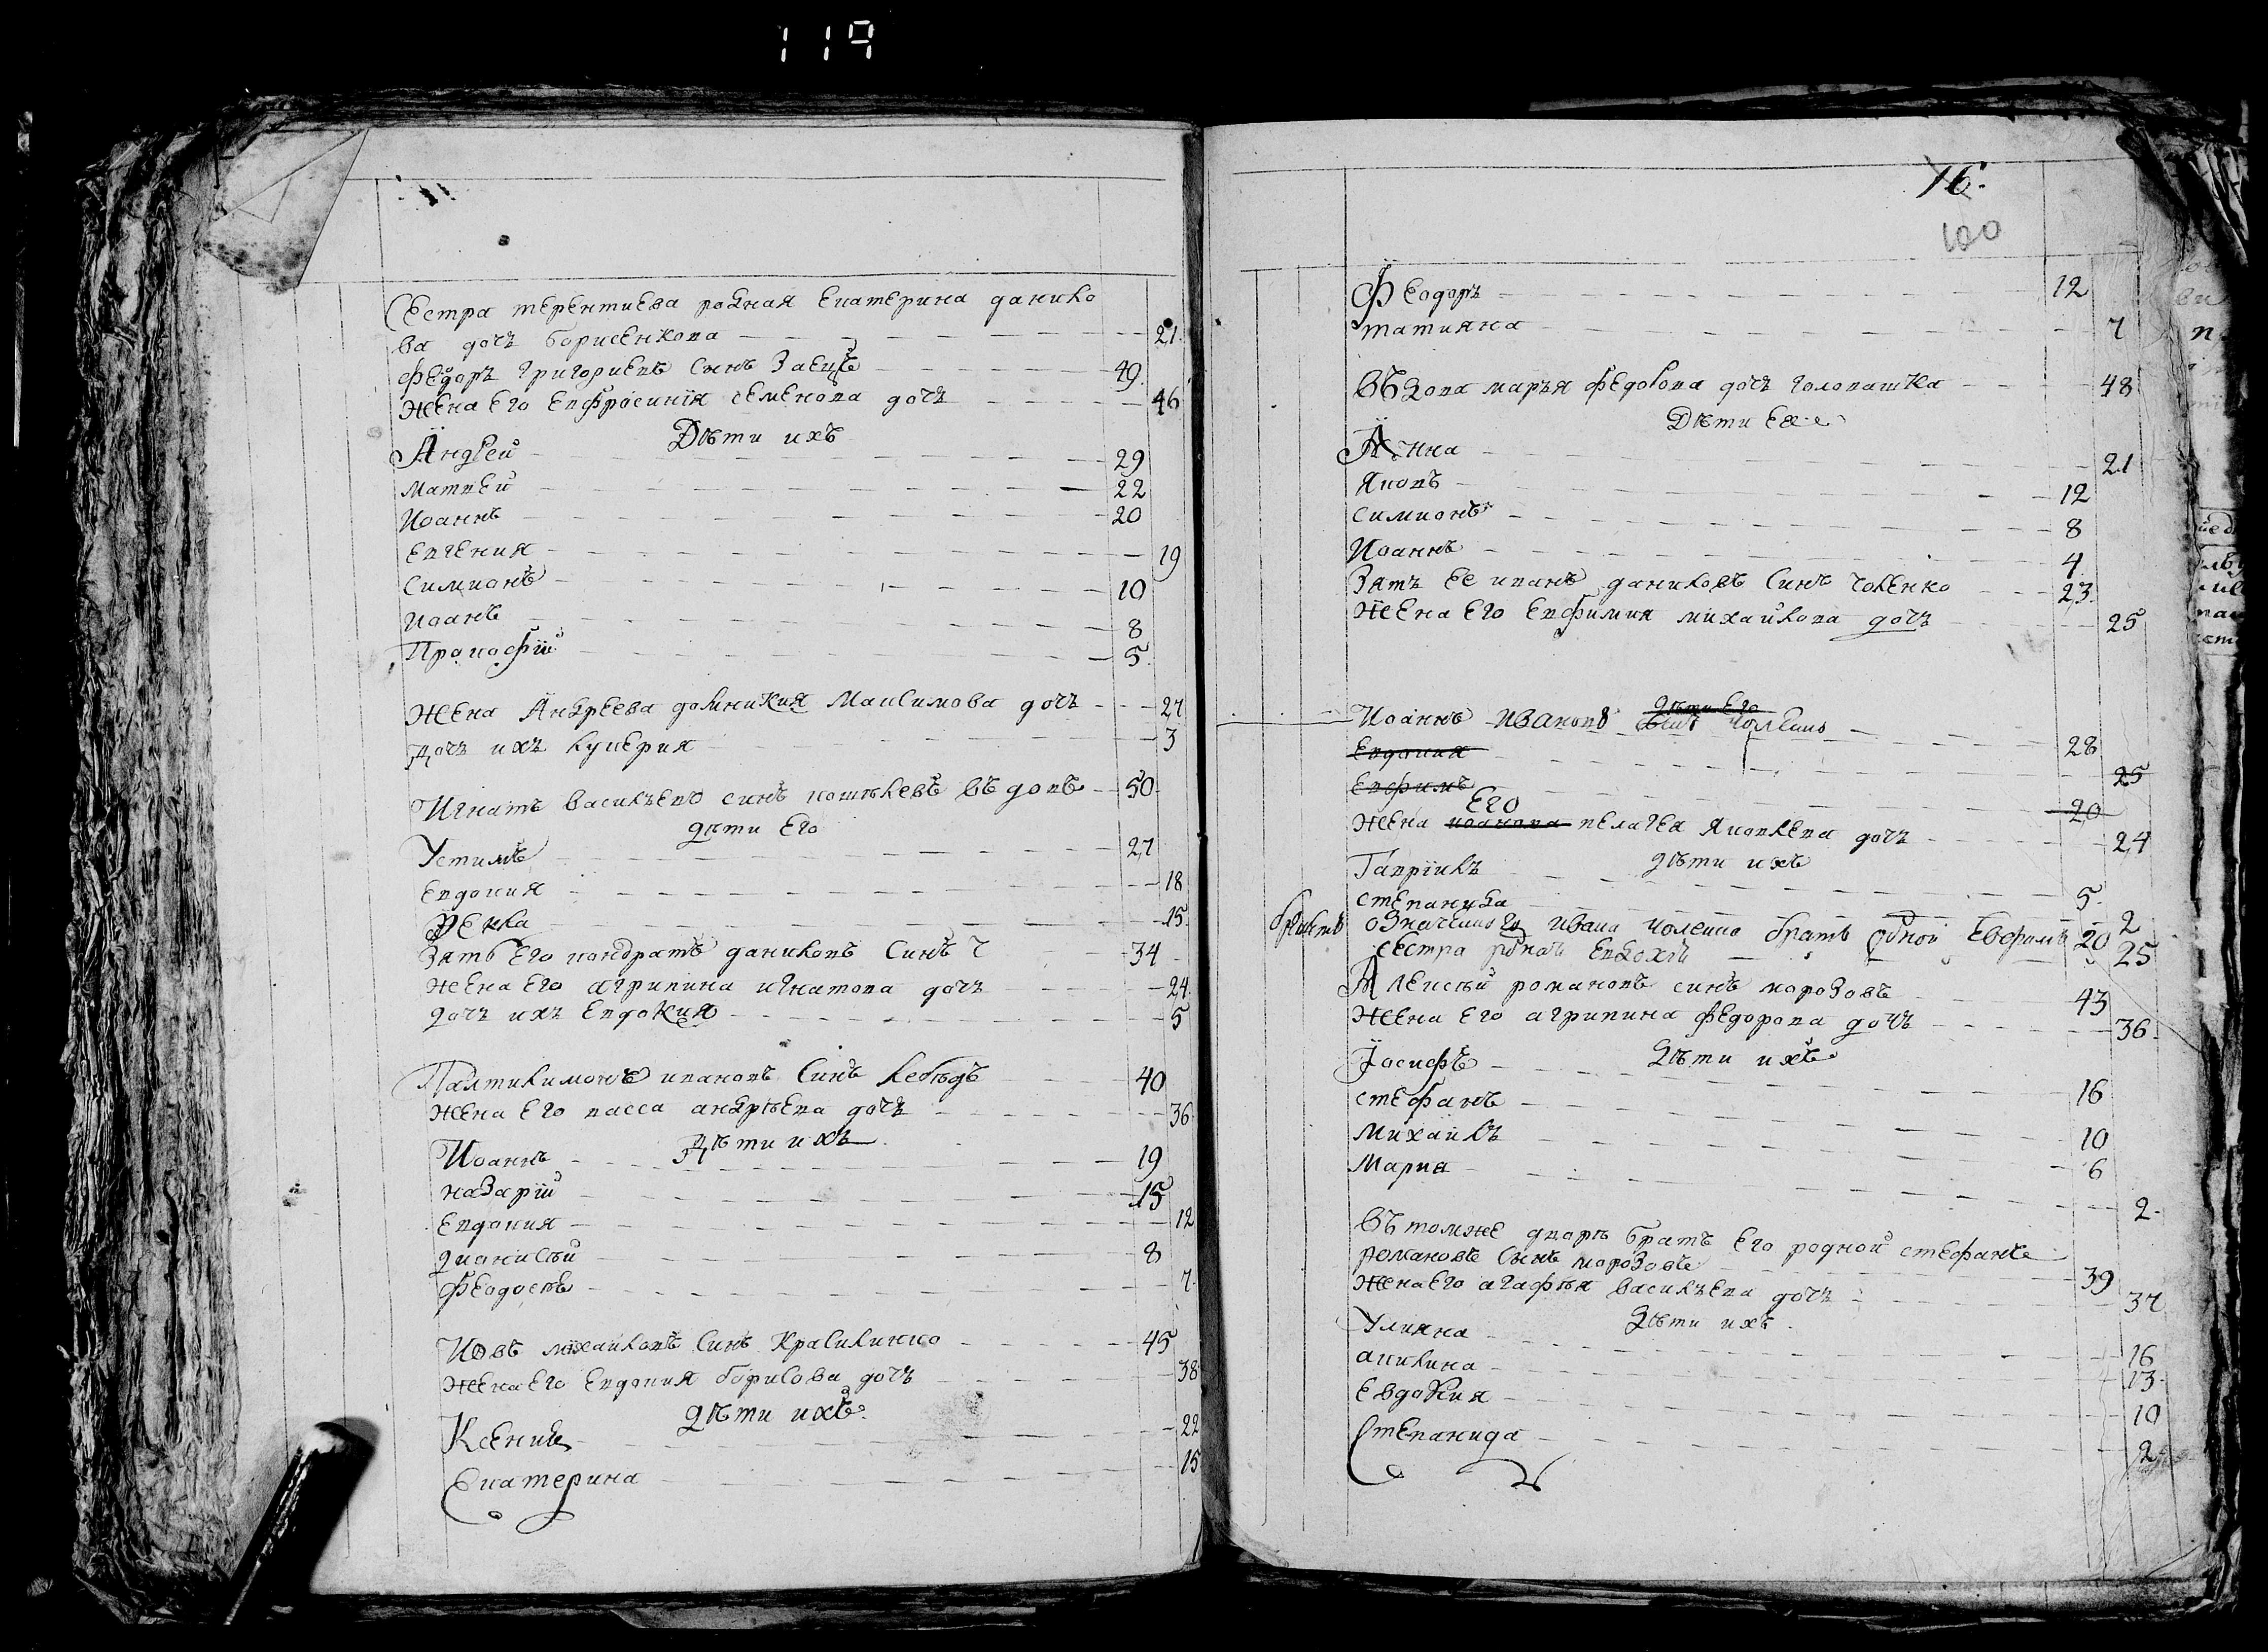 119
Сестра терентиева родная Екатерина данило
ва дочъ борисенкова 21
Федоръ григориевъ Синъ Заецъ 49
Жена Его Евфросинїя семенова дочъ 46
Дѣти ихъ
Андрей 29
Матвей 22
Иоаннъ 20
Евгения 19
Симионъ 10
иоанъ 8
Прокофїй 5
Жена Андреева домникия Максимова дочъ 27
Дочъ ихъ лукерия 3
Игнатъ василъевъ синъ кошелевъ вѣдовъ 50
дѣти Его
Устимъ 27
Евдокия 18
Фекла 15
Зять Его кондратъ даниловъ Синъ 34
Жена Его агрипина игнатова дочъ 24
дочъ ихъ Евдокия 5
Палтилимонъ ивановъ Синъ лебѣдь 40
Жена Его васса андрѣева дочъ 36
Дѣти ихъ
Иоаннъ 19
назарїй 15
Евдокия 12
дионисѣй 8
Феодосѣ 7
Иовъ михайловъ Синъ Красилнико 45
Жена Его Евдокия борисова дочъ 38
дѣти ихъ
Ксения 22
Екатерина 15
76.
100
Феодоръ 12
татияна 7
Вѣдова маръя федорова дочъ головашка 48
Дѣти Ее
Анна 21
Яковъ 12
Симионъ 8
Иоаннъ 4
Зять Ее иванъ даниловъ Синъ 23
Жена Его Евфимия михайлова дочъ 25
дѣти Его
Иоаннъ Ивановъ синъ 28
Евдокия 25
Евфимъ 20
Его
Жена иоанова пелагея Яковлева дочъ 24
дѣти ихъ
Гаврїилъ 5
степанида 2
означеного Ивана братъ родной Евфимъ 20
сестра родная Евдокия 25
Алексѣй романовъ синъ морозовъ 43
Жена Его агрипина федорова дочъ 36
Дѣти ихъ
Иосифъ 16
стефанъ 10
Михайлъ 6
Мария 2
Въ томже дворѣ братъ Его родной стефанъ
романовъ Синъ морозовъ 39
Жена Его агафѣя василъева дочъ 37
Дѣти ихъ
Улияна 16
акилина 13
Евдокия 10
Степанида 2